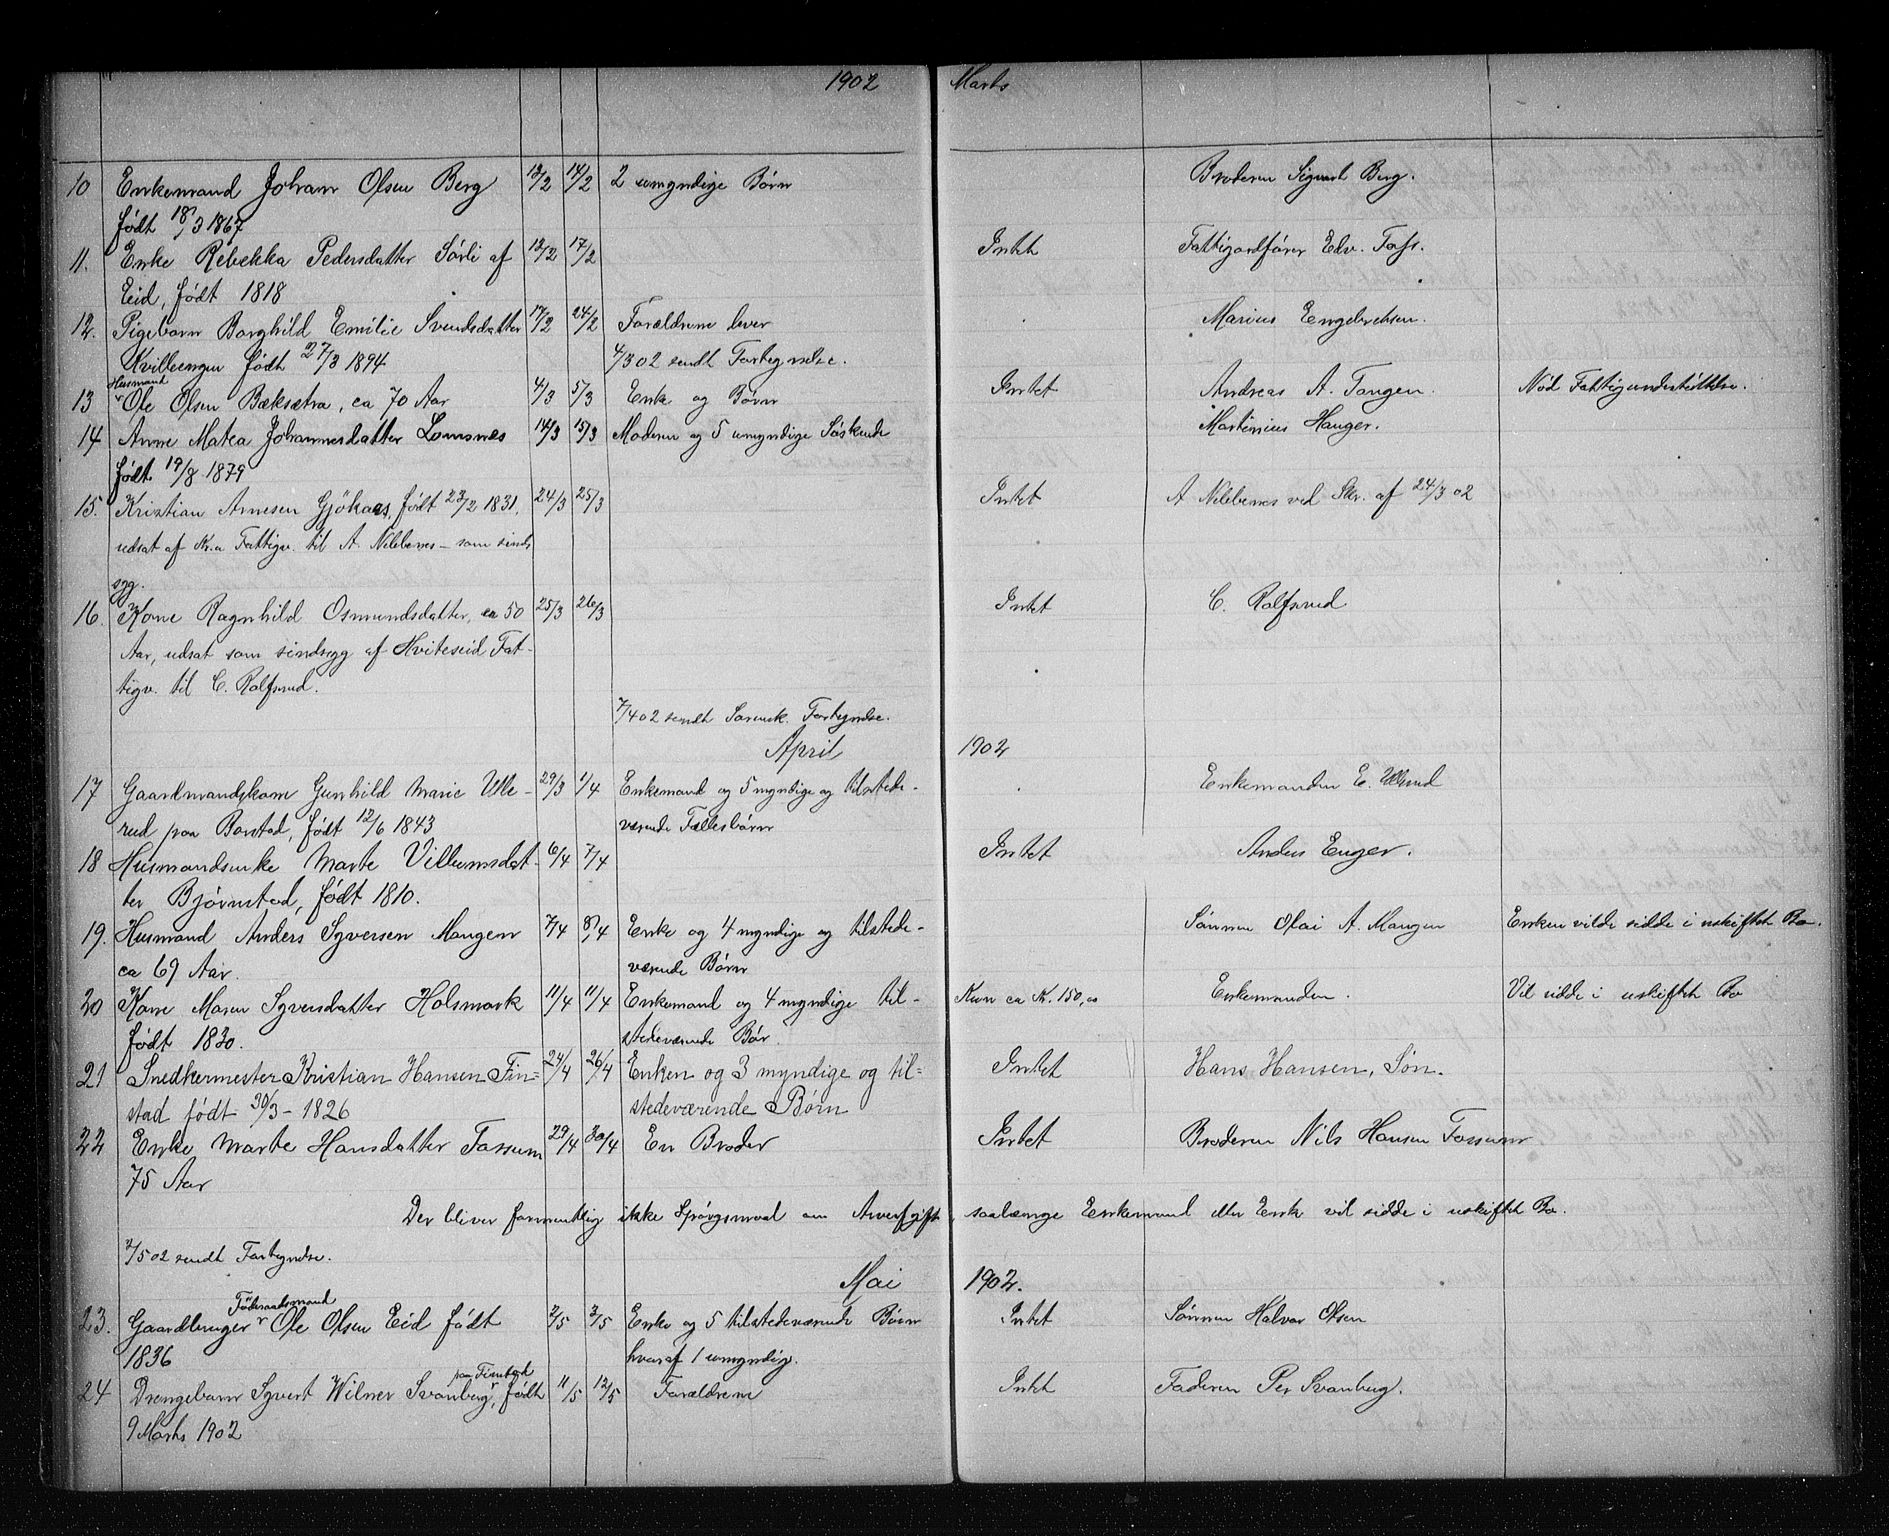 1902 Marts
10 Enkemand Johan Olsen Berg 12/2 14/2 2 umyndige Børn Broderen Sigvart Berg.
født 18/3 1867
11. Enke Rebekka Pedersdatter Sörli af 12/2 17/2 Intet Fattigordfører Edv. Foss.
Eid, født 1818
12. Pigebarn Borghild Emilie Svendsdatter 17/2 24/2 Forældrene lever . Marius Engebretsen.
Kvilleengen født 27/3 1894 4/3 02 sendt Fortegnelse.
Husmand
13 Ole Olsen Bæksætra, ca 70 Aar 4/3 5/3 Enke og Børn Intet Andreas A. Tangen. Nød Fattigunderstøttelse.
14 Anne Matea Johannesdatter Lomsnes 14/3 15/3 Moderen og 5 umyndige Söskende Martinius Hauger.
født 19/8 1879
15. Kristian Arnesen Gjökaas, født 23/2 1831, 24/3 25/3 Intet A Nilebenes ved Skr. af 24/3 02
udsat af Kr.a Fattigv. til A. Nilebenes – som sinds
syg.
16. Kone Ragnhild Osmundsdatter, ca 50 25/3 26/3 Intet C. Rolfsrud
Aar, udsat som sindsyg af Hviteseid Fat-
tigv. til C. Rolfsrud.
7/4 02 sendt Sorensk. Fortegnelse.
April 1902
17 Gaardmandskone Gunhild Marie Ulle- 29/3 1/4 Enkemand og 5 myndige og tilstede- . Enkemanden E. Ullerud
rud paa Bonstad, født 12/6 1843 værende Fællesbörn
18 Husmandsenke Marte Villumsdat- 6/4 7/4 Intet Anders Enger.
ter Bjørnstad, født 1810.
19. Husmand Anders Syversen Mangen 7/4 8/4 Enke og 4 myndige og tilstede- Sønnen Olai A. Mangen Enken vilde sidde i uskiftet Bo.
ca 69 Aar. værende Børn
20 Kone Maren Syversdatter Holsmark 11/4 11/4 Enkemand og 4 myndige til- Kun ca Kr. 150,00 Enkemanden. Vil sidde i uskiftet Bo
født 1830. stedeværende Bør.
21 Snedkermester Kristian Hansen Fin= 24/4 26/4 Enken og 3 myndige og til= Intet Hans Hansen, Søn.
stad født 30/3 – 1826 stedeværende Børn
22 Enke Marte Hansdatter Fossum 29/4 30/4 En Broder Intet Broderen Nils Hansen Fossum
75 Aar
Der bliver formentlig ikke Spörgsmaal om Arveafgift, saalænge Enkemand eller Enke vil sidde i uskiftet Bo.
2/5 02 sendt Fortegnelse.
Mai 1902.
Föderaadsmand
23. Gaardbruger Ole Olsen Eid født 2/5 3/5 Enke og 5 tilstedeværende Børn Intet Sønnen Halvor Olsen
1836 hvoraf 1 umyndig.
paa Finstad
24 Drengebarn Syvert Wilner Svanberg, født 11/5 12/5 Forældrene Intet Faderen Per Svanberg.
9 Marts 1902